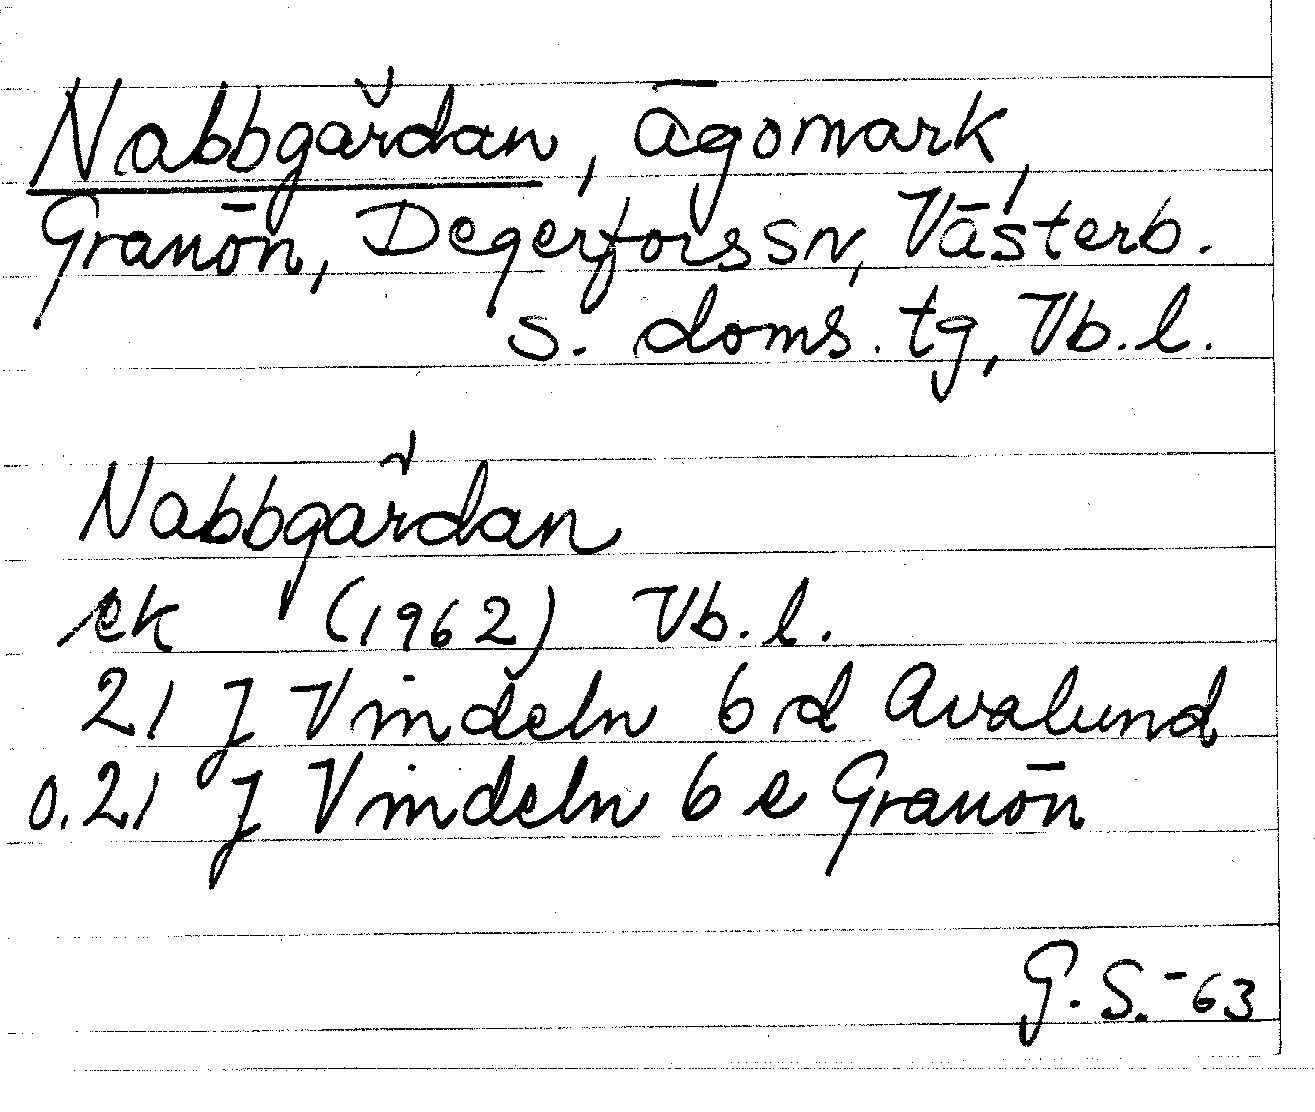 Nabbgårdan, ägomark,
Granön, Degerfors sn, Västerb.
s. doms. tg, Vb. l.
Nabbgårdan
ek (1962) Vb. l.
21 J Vindeln 6 d Avalund
0.21 J Vindeln 6 e Granön
G. S. -63